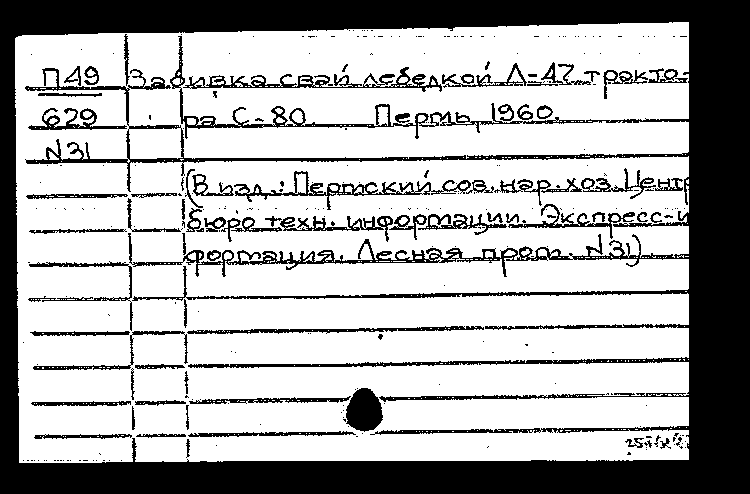 П49 Забивка свай лебедкой Л-47 тракто-
629 ра С-80. Пермь, 1960.
N31
(В изд.: Пермский сов. нар. хоз. Центр
бюро техн. информации. Экспресс-и
формация. Лесная пром. N31)